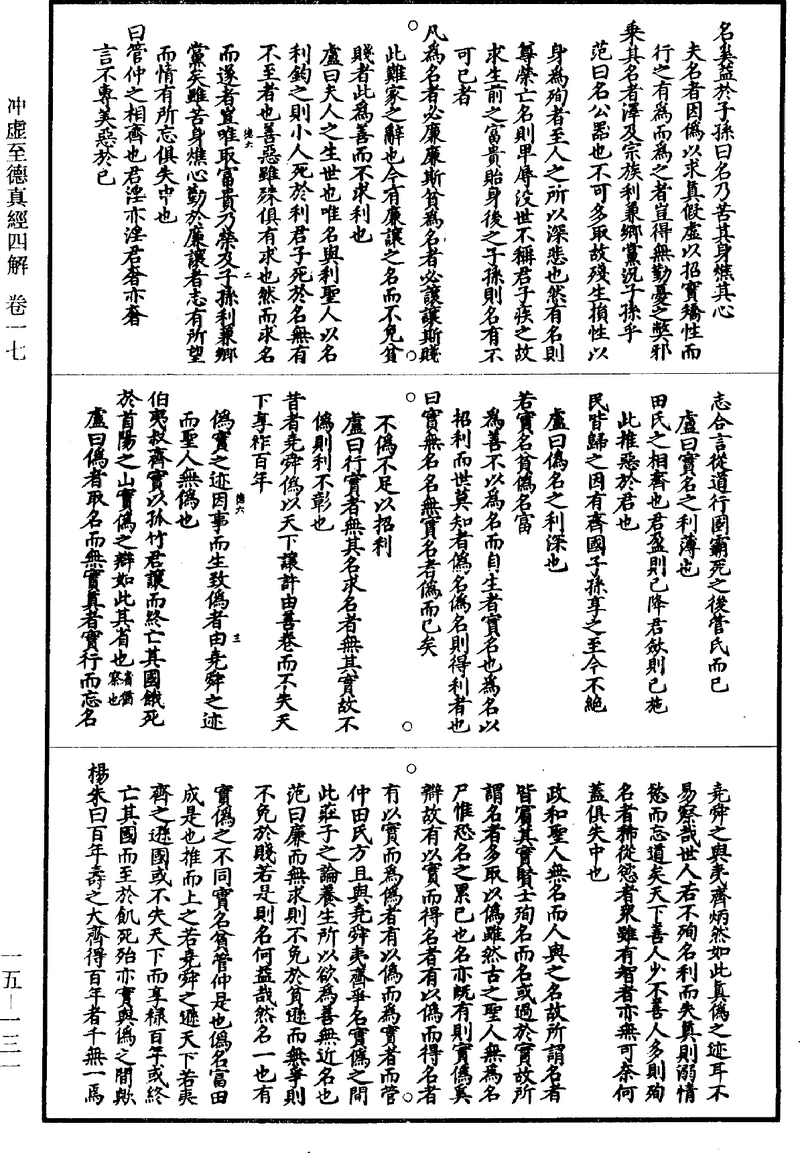 冲虛至德真經四解　卷一七
一五—一三一
名奚益於子孫曰名乃苦其身燋其心
夫名者因偽以求真假虛以招實矯性而
行之有為而為之者豈得無勤憂之弊邪
乘其名者澤及宗族利兼鄉黨況子孫乎
范曰名公器也不可多取故殘生損性以
身為殉者至人之所以深悲也然有名則
尊榮亡名則卑辱沒世不稱君子疾之故
求生前之富貴貽身後之子孫則名有不
可已者
凡為名者必廉廉斯貧為名者必讓讓斯賤
此難家之辭也今有廉讓之名而不免貧
賤者此為善而不求利也
盧曰夫人之生世也唯名與利聖人以名
利鈞之則小人死於利君子死於名無有
不至者也善惡雖殊俱有求也然而求名
而遂者豈唯取富貴乃榮及子孫利兼鄉
黨矣雖苦身燋心勤於廉讓者志有所望
而情有所忘俱失中也
曰管仲之相齊也君淫亦淫君奢亦奢
言不專美惡於己
志合言從道行國霸死之後管氏而已
盧曰實名之利薄也
田氏之相齊也君盈則己降君斂則己施
此推惡於君也
民皆歸之因有齊國子孫享之至今不絕
盧曰偽名之利深也
若實名貧偽名富
為善不以為名而自生者實名也為名以
招利而世莫知者偽名偽名則得利者也
曰實無名名無實名者偽而已矣
不偽不足以招利
盧曰行實者無其名求名者無其實故不
偽則利不彰也
昔者堯舜偽以天下讓許由善卷而不失天
下享祚百年
偽實之迹因事而生致偽者由堯舜之迹
而聖人無偽也
伯夷叔齊實以孤竹君讓而終亡其國餓死
於首陽之山實偽之辯如此其省也省猶察也
盧曰偽者取名而無實真者實行而忘名
堯舜之與夷齊炳然如此真偽之迹耳不
易察哉世人若不殉名利而失真則溺情
慾而忘道矣天下善人少不善人多則殉
名者稀從慾者眾雖有智者亦無可奈何
蓋俱失中也
政和聖人無名而人與之名故所謂名者
皆賓其實賢士殉名而名或過於實故所
謂名者多取以偽雖然古之聖人無為名
尸惟恐名之累己也名亦既有則實偽奚
辯故有以實而得名者有以偽而得名者
有以實而為偽者有以偽而為實者而管
仲田氏方且與堯舜夷齊爭名實偽之間
此莊子之論養生所以欲為善無近名也
范曰廉而無求則不免於貧遜而無爭則
不免於賤若是則名何益哉然名一也有
實偽之不同實名貧管仲是也偽名富田
成是也推而上之若堯舜之遜天下若夷
齊之遜國或不失天下而享祿百年或終
亡其國而至於飢死殆亦實與偽之間歟
楊朱曰百年壽之大齊得百年者千無一焉